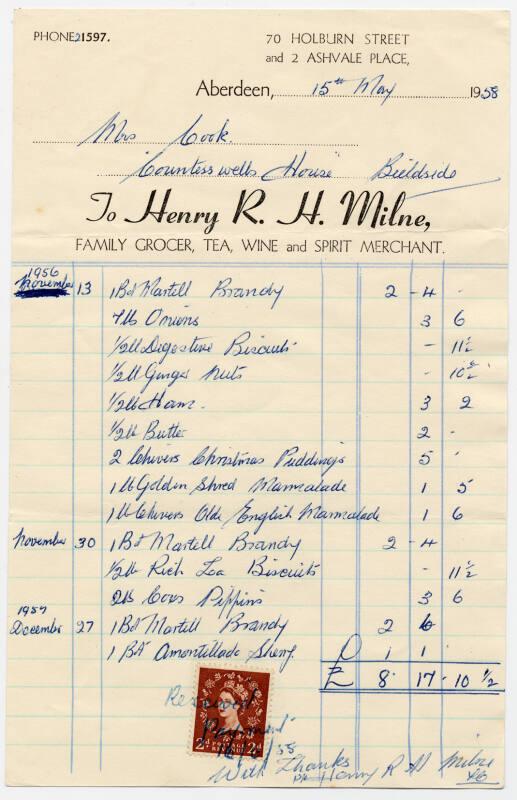 PHONE 21597.
70 HOLBURN STREET
and 2 ASHVALE PLACE,
Aberdeen, 15th May 1958
Mrs Cook.
"Countesswells House" Bieldside
To Henry R. H. Milne,
FAMILY GROCER, TEA, WINE and SPIRIT MERCHANT.
1956
November 13 1 Bot Martell Brandy 2 - 4 -
7 lb Onions 3 6
1/2 lb Digestive Biscuits - 11½
1/2 lb Ginger Nuts - 10½
1/2 lb Ham. 3 2
1/2 lb Butter 2 -
2 Chivers Christmas Puddings 5 -
1 lb Golden Shred Marmalade 1 5
1 lb Chivers Olde English Marmalade 1 6
November 30 1 Bot Martell Brandy 2 - 4
1/2 lb Rich Tea Biscuits - 11½
2 lb Coxs Pippins 3 6
1957
December 27 1 Bot Martell Brandy 2 6
1 Bot Amontillado Sherry 1 1
£ 8 17 - 10 ½
Received
Payment
2d POSTAGE REVENUE 2d
16/5/58
With Thanks
pr Henry R H Milne